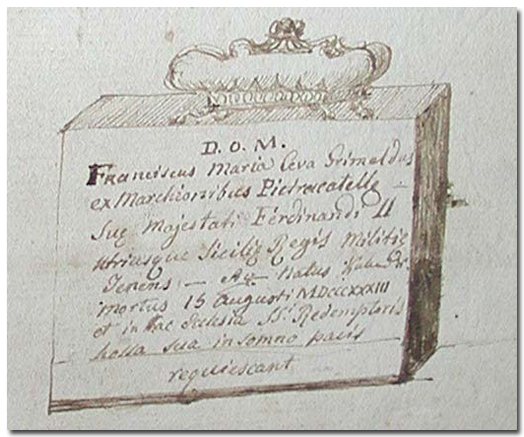 D. O. M.
Franciscus Maria Ceva Grimaldus
ex Marchionibus Pietracatelle
Suę Majestati Ferdinandi II
utriusque Sicilię Regis Militię
Tenens — — natus
mortus 15 augusti MDCCCXXXIII
et in hac Ecclesia SS. Redemptoris
hossa sua in somno pacis
requiescant